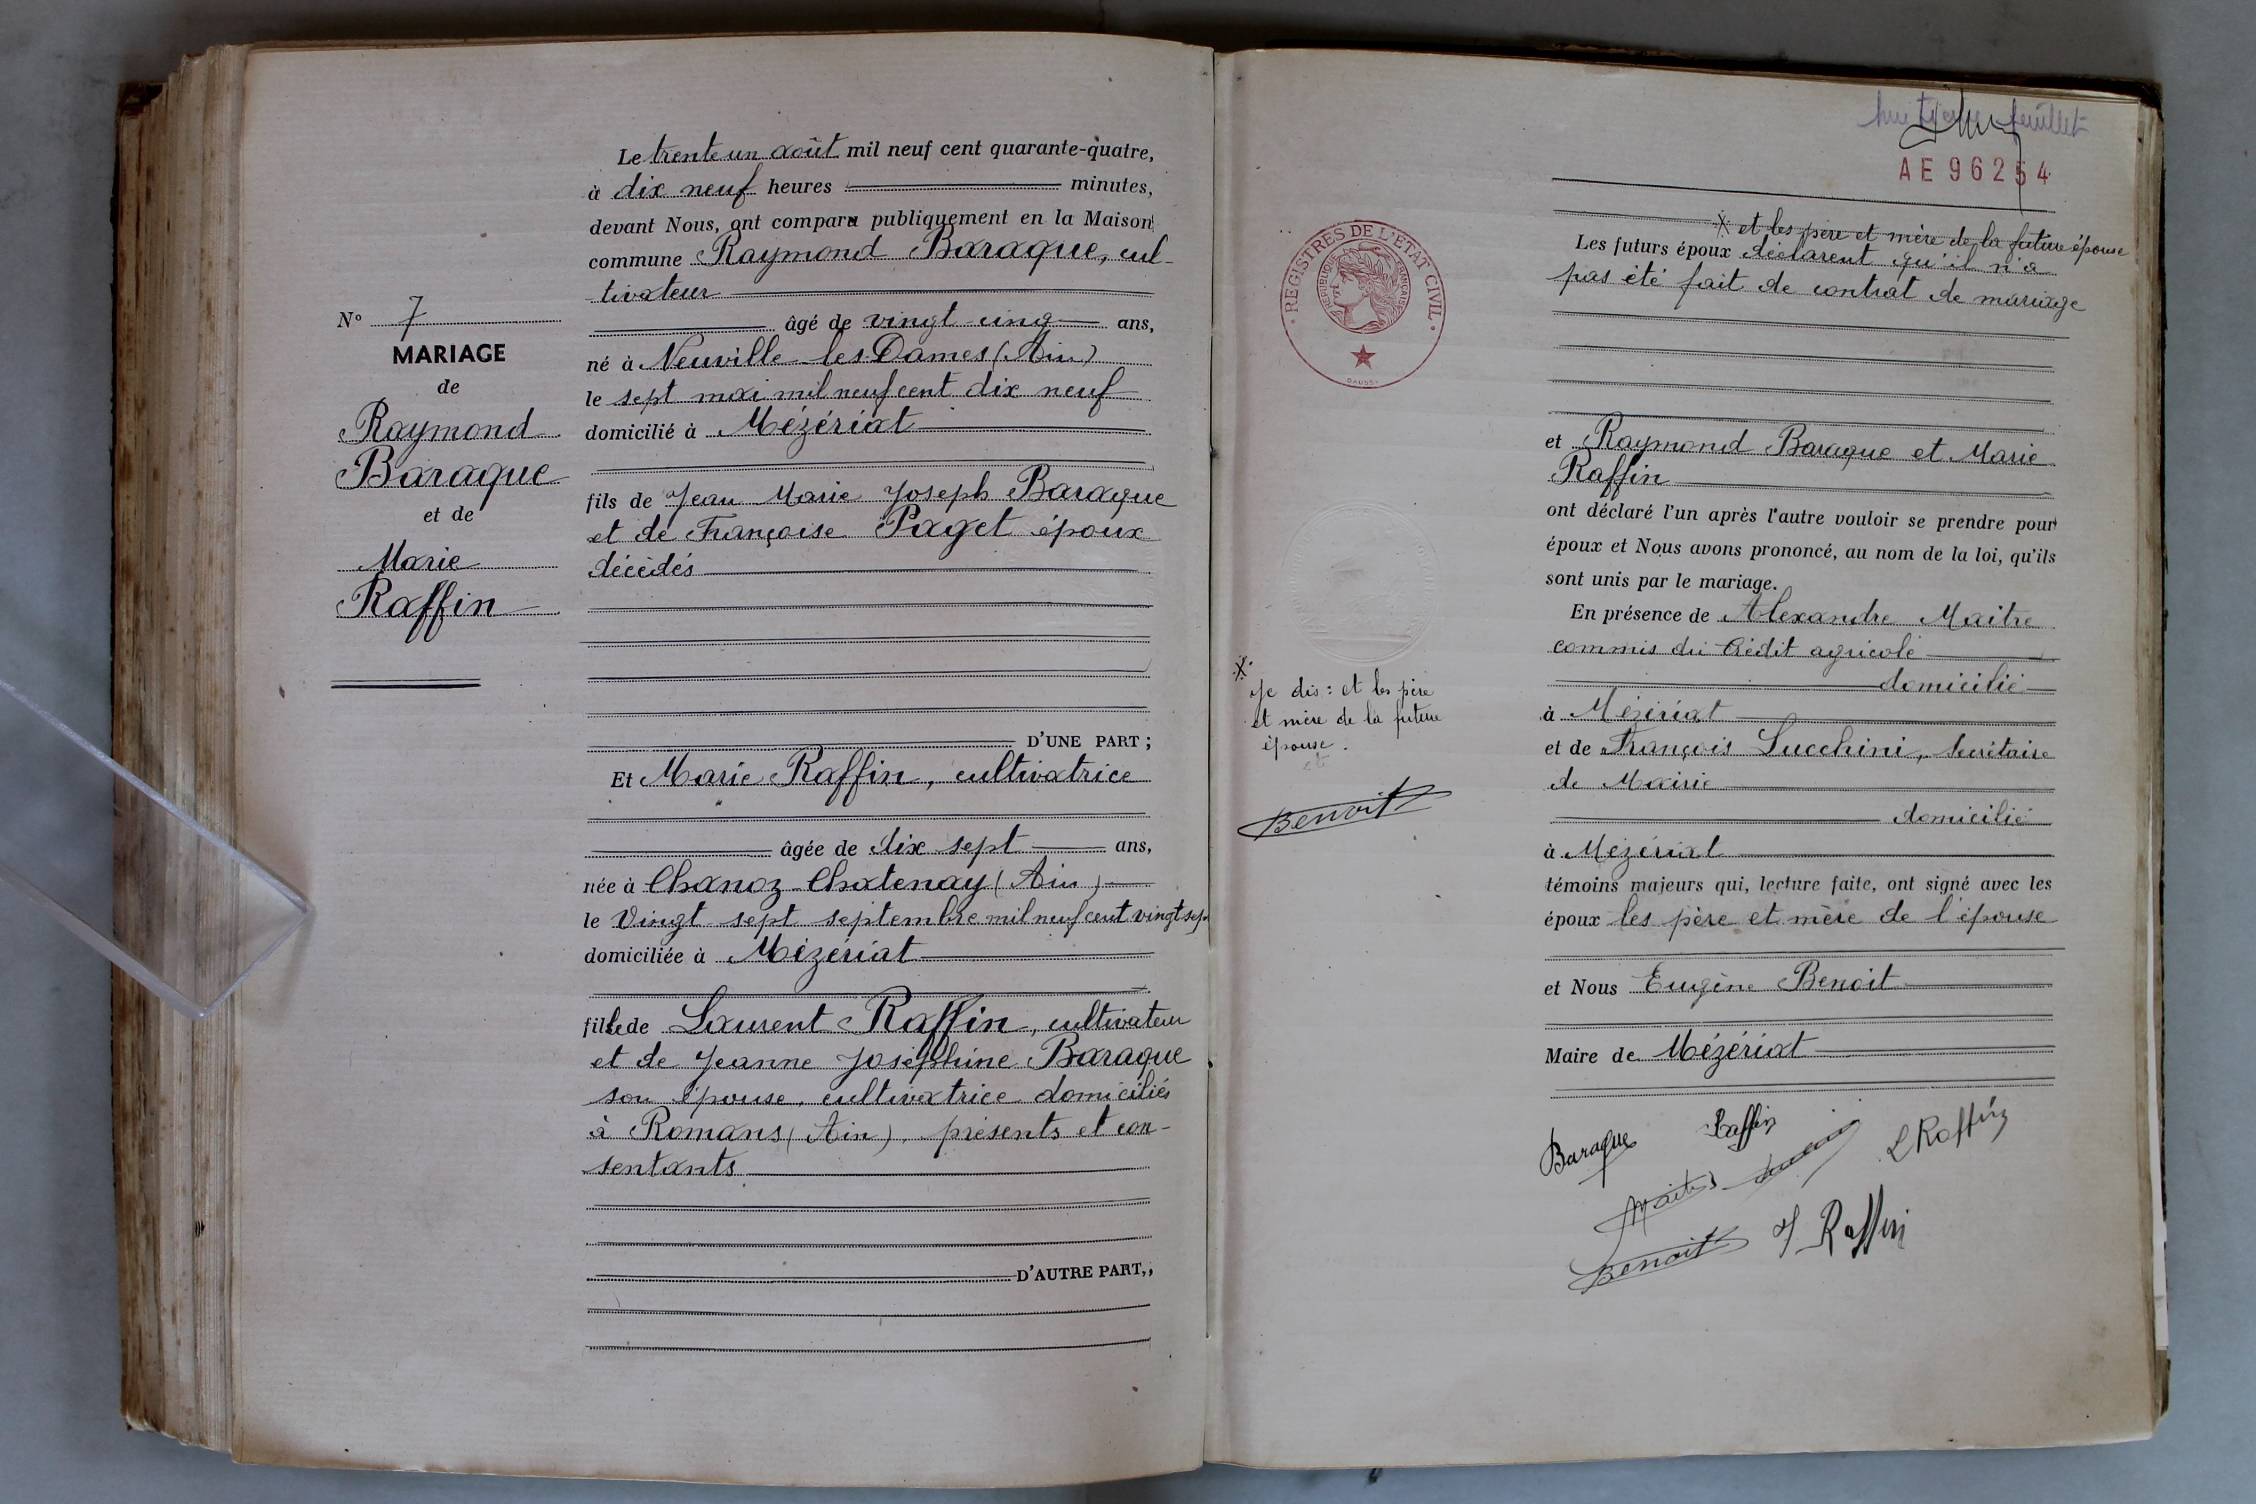 N° 7
MARIAGE
de
Raymond
Baraque
et de
Marie
Raffin
Le trente un août mil neuf cent quarante-quatre,
à dix neuf heures minutes,
devant Nous, ont comparu publiquement en la Maison
commune Raymond Baraque, cul-
tivateur
âgé de vingt cinq ans,
né à Neuville les Dames (Ain)
le sept mai mil neuf cent dix neuf
domicilié à Mézériat
fils de Jean Marie Joseph Baraque
et de Françoise Paget époux
décédés
D'UNE PART ;
Et Marie Raffin, cultivatrice
âgée de dix sept ans,
née à Chanoz-Chatenay (Ain)
le Vingt sept septembre mil neuf cent vingt sep
domiciliée à Mézériat
fille de Laurent Raffin, cultivateur
et de Jeanne Joséphine Baraque
son épouse, cultivatrice domiciliés
à Romans (Ain), présents et con-
sentants
D'AUTRE PART,,
huitième feuillet
AE 96254
REGISTRES DE L'ETAT CIVIL
REPUBLIQUE FRANÇAISE
X et les père et mère de la future épouse
Les futurs époux déclarent qu'il n'a
pas été fait de contrat de mariage
et Raymond Baraque et Marie
Raffin
ont déclaré l'un après l'autre vouloir se prendre pour
époux et Nous avons prononcé, au nom de la loi, qu'ils
sont unis par le mariage.
En présence de Alexandre Maitre
commis du Crédit agricole
domicilié
à Mézériat
et de François Lucchini, Secrétaire
de Mairie
domicilié
à Mézériat
témoins majeurs qui, lecture faite, ont signé avec les
époux les père et mère de l'épouse
et Nous Eugène Benoit
Maire de Mézériat
X
Je dis : et les père
et mère de la future
épouse.
Benoit
Baraque
Raffin
L Raffin
Maitre
Benoit
J Raffin